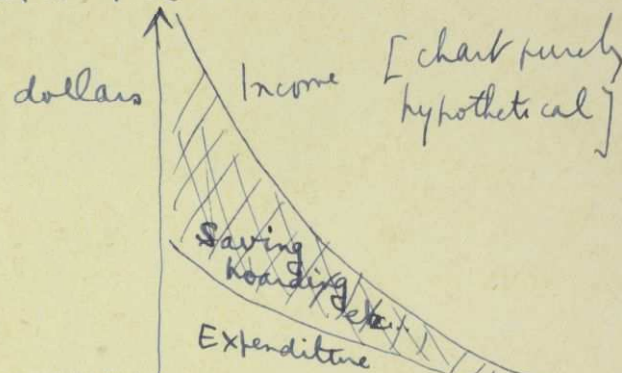 dollars
Income
[chart purely
hypothetical]
Saving
hoarding
etc..
Expenditure